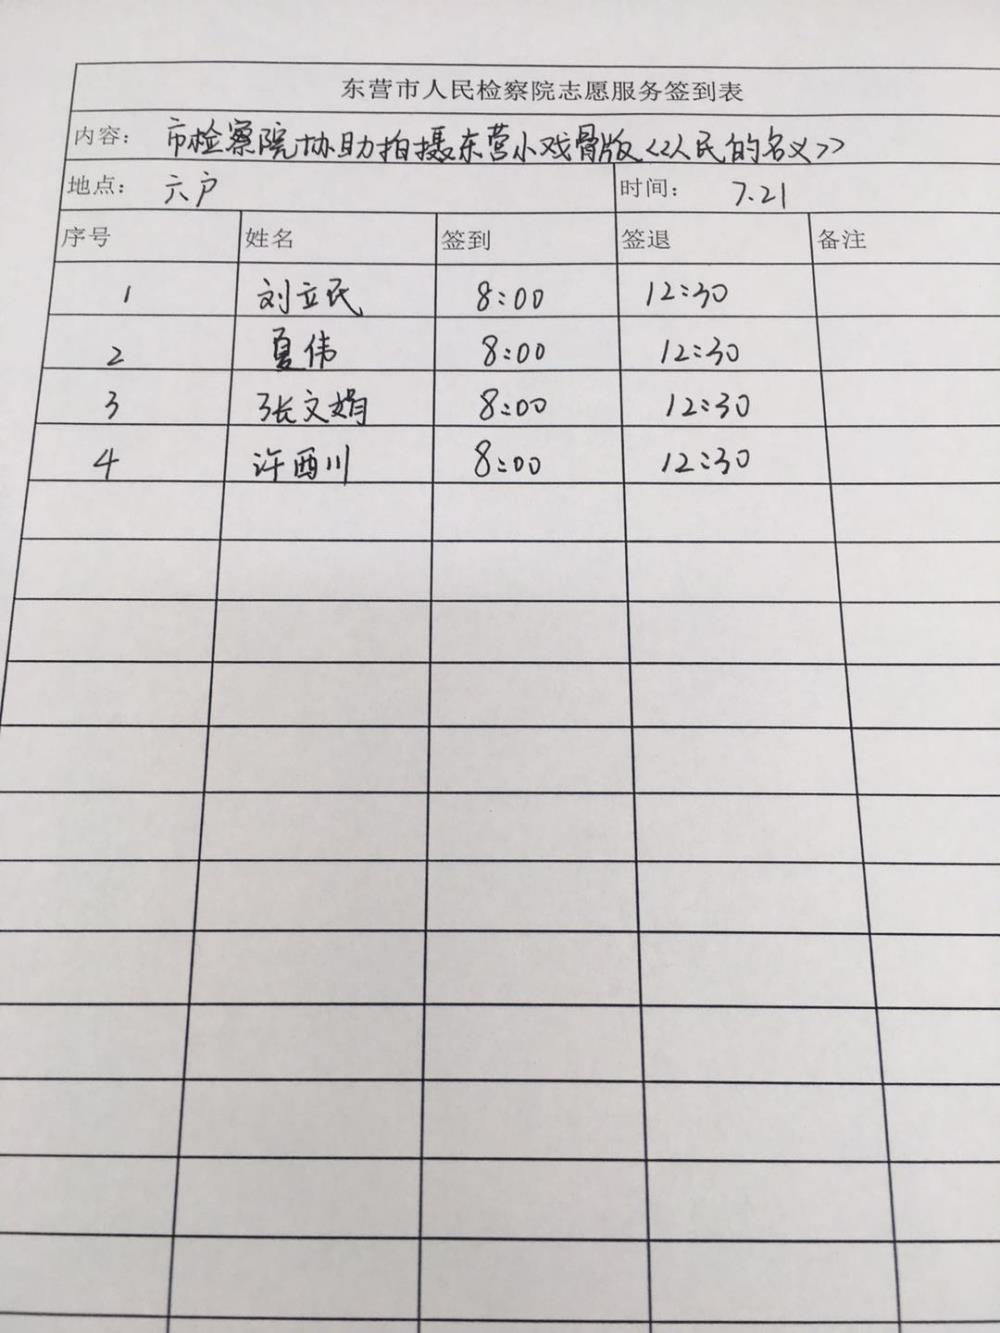 东营市人民检察院志愿服务签到表
内容： 市检察院协助拍摄东营小戏骨版《人民的名义》
地点： 六户 时间： 7.21
序号 姓名 签到 签退 备注
1 刘立民 8:00 12:30
2 夏伟 8:00 12:30
3 张文娟 8:00 12:30
4 许酉川 8:00 12:30